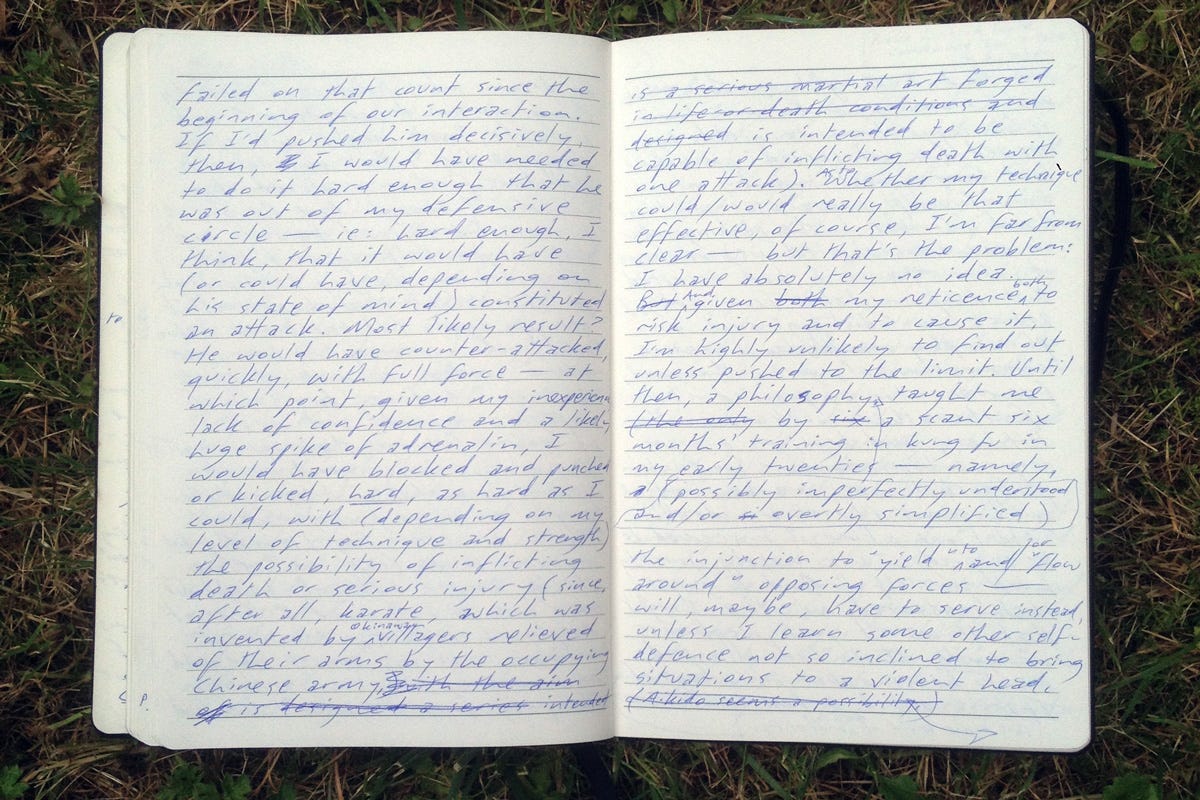 failed on that count since the
beginning of our interaction.
If I'd pushed him decisively,
then, I would have needed
to do it hard enough that he
was out of my defensive
circle — ie: hard enough, I
think, that it would have
(or could have, depending on
his state of mind) constituted
an attack. Most likely result?
He would have counter-attacked,
quickly, with full force — at
which point, given my inexperience
lack of confidence and a likely
huge spike of adrenalin, I
would have blocked and punched
or kicked, hard, as hard as I
could, with (depending on my
level of technique and strength)
the possibility of inflicting
death or serious injury (since,
after all, karate, which was
invented by okinawan villagers relieved
of their arms by the occupying
Chinese army, with the aim
of is designed a series intended
to
P.
is a serious martial art forged
in life-or-death conditions and
designed is intended to be
capable of inflicting death with
one attack). Whether my technique
could/would really be that
effective, of course, I'm far from
clear — but that's the problem:
I have absolutely no idea.
But And, given both my reticence both to
risk injury and to cause it,
I'm highly unlikely to find out
unless pushed to the limit. Until
then, a philosophy taught me
(the only by six a scant six
months' training in kung fu in
my early twenties — namely,
(possibly imperfectly understood
and/or overtly simplified)
the injunction to "yield" to and or "flow
around" opposing forces —
will, maybe, have to serve instead,
unless I learn some other self-
defence not so inclined to bring
situations to a violent head.
(Aikido seems a possibility.)